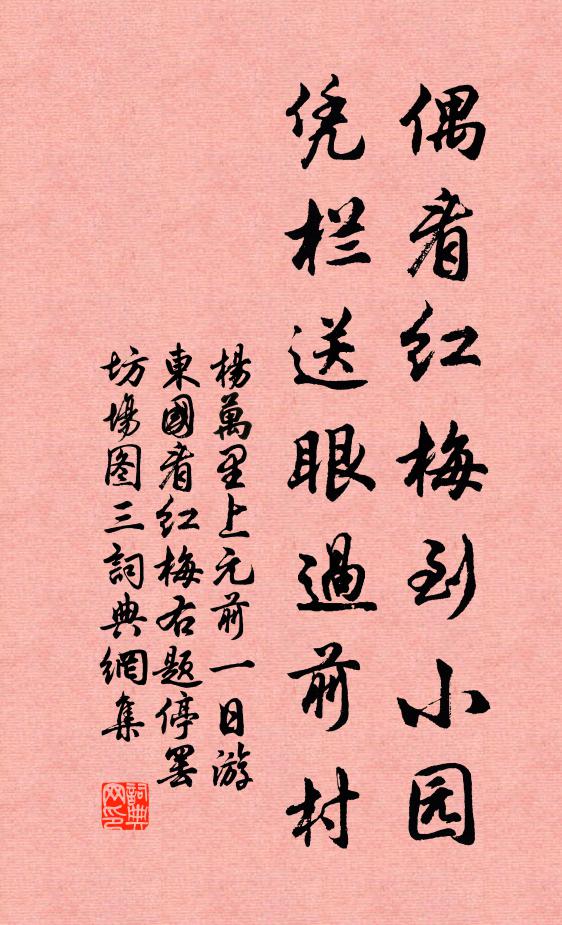 偶看红梅到小园
凭栏送眼過前村
楊萬里上元前一日游
東國看红梅右题停罢
坊場图三詞典網集
詞典网印